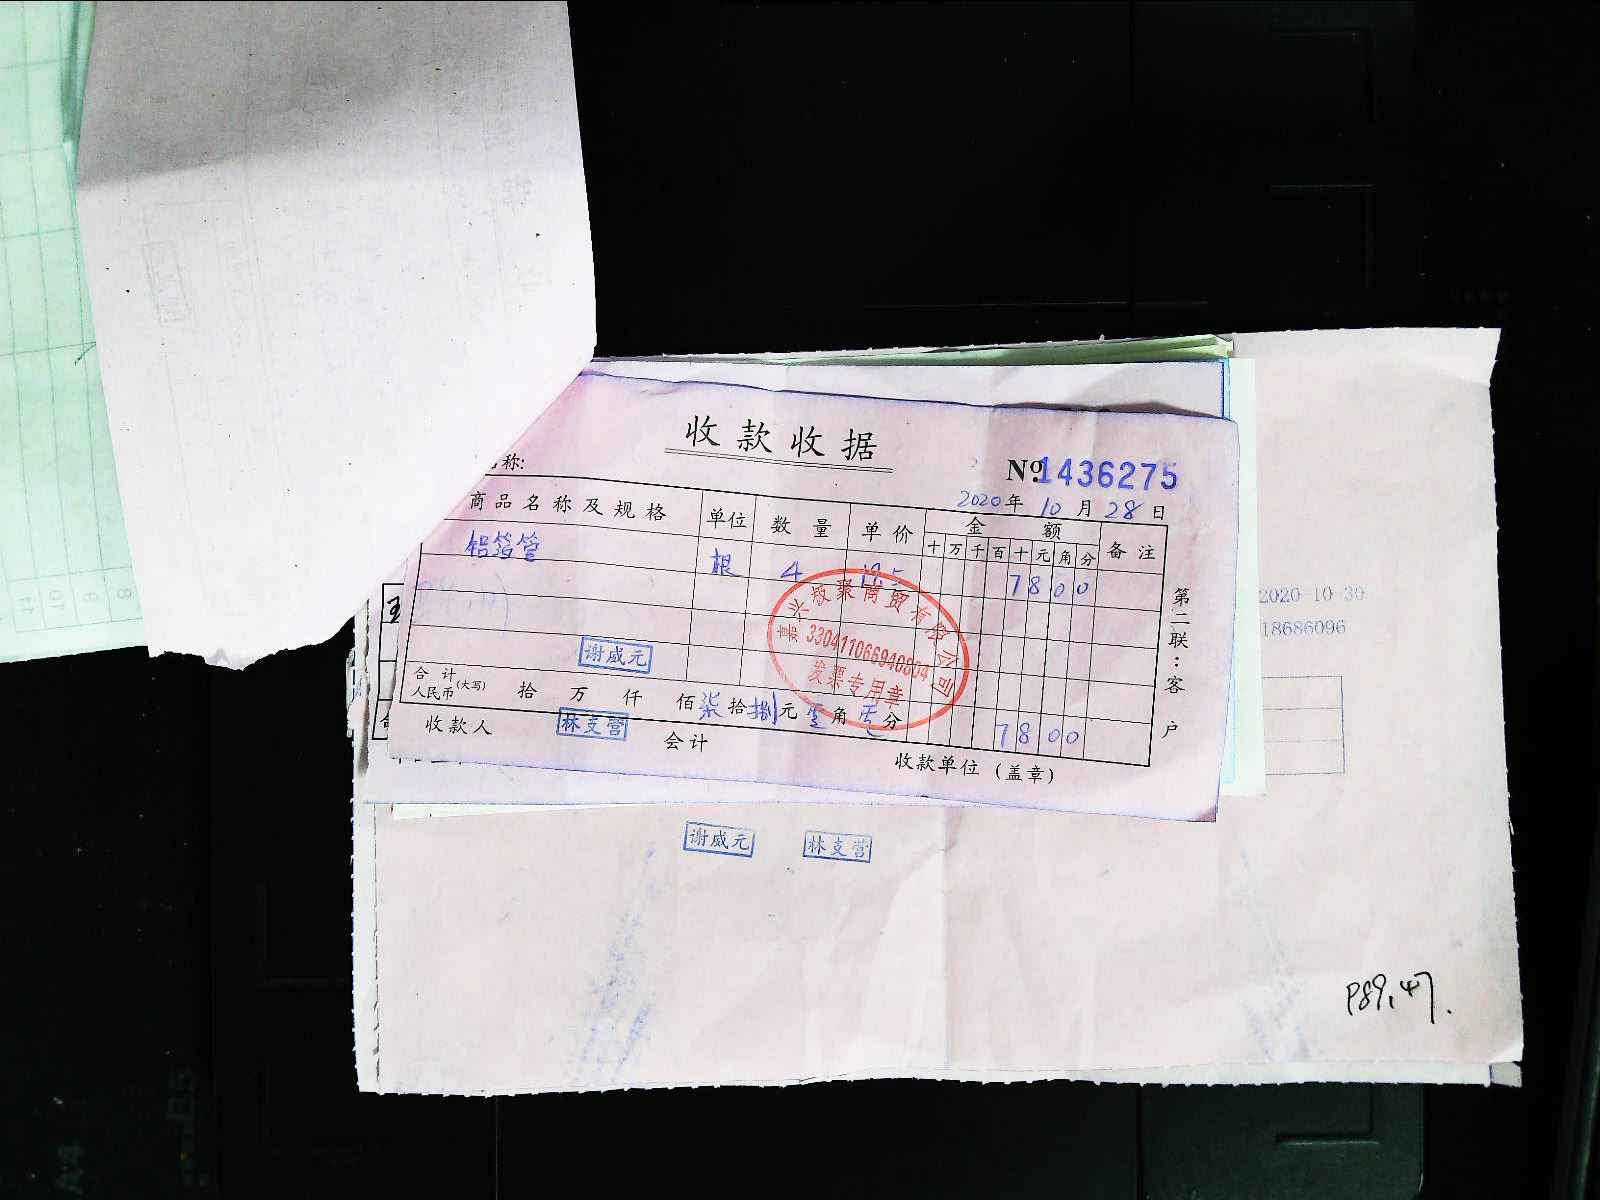 收款收据
称:
№1436275
2020年10月28日
商品名称及规格 单位 数量 单价 金额 备注
十 万 千 百 十 元 角 分
铝箔管 根 4 19.5 7800
嘉兴敬聚商贸有限公司
330411066940804
发票专用章
谢威元
合计人民币(大写) 拾 万 仟 佰 柒拾捌元零角零分 7800
收款人 林支营 会计 收款单位(盖章)
第二联:客户
2020-10-30
18686096
谢威元 林支营
P89.47.
11
10
9
8
A4
B5